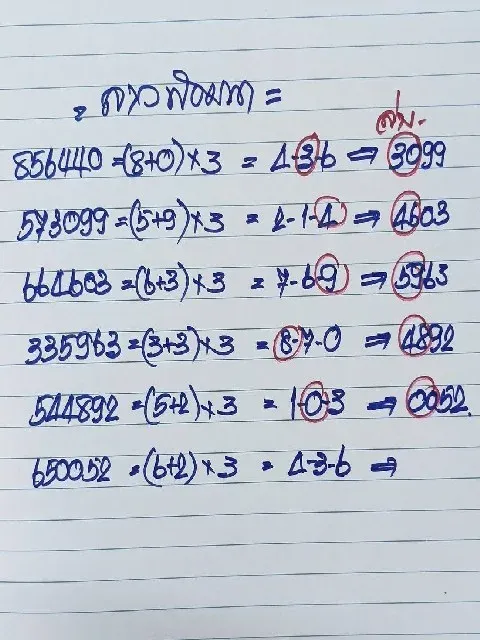 = ลาวพัฒนา =
856440 =(8+0)×3 = 4-3-6 ⇒ 3099
573099 =(5+9)×3 = 2-1-4 ⇒ 4603
664603 =(6+3)×3 = 7-6-9 ⇒ 5963
335963 =(3+3)×3 = 8-7-0 ⇒ 4892
544892 =(5+2)×3 = 1-0-3 ⇒ 0052.
650052 =(6+2)×3 = 4-3-6 ⇒